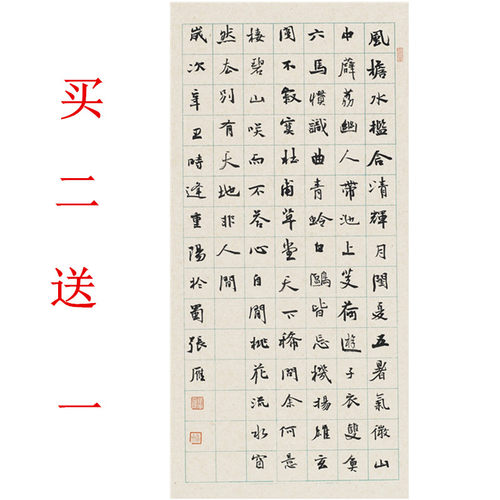 买二送一
風檐水檻含清輝月閏夏五暑氣微山
中薜荔幽人帶池上芰荷遊子衣雙魚
六馬慣識曲青蛉白鷗皆忘機揚雄玄
閣不寂寞杜甫草堂天下稀問余何意
棲碧山咲而不答心自閒桃花流水窅
然去别有天地非人間
歲次辛丑時逢重陽於蜀張雁